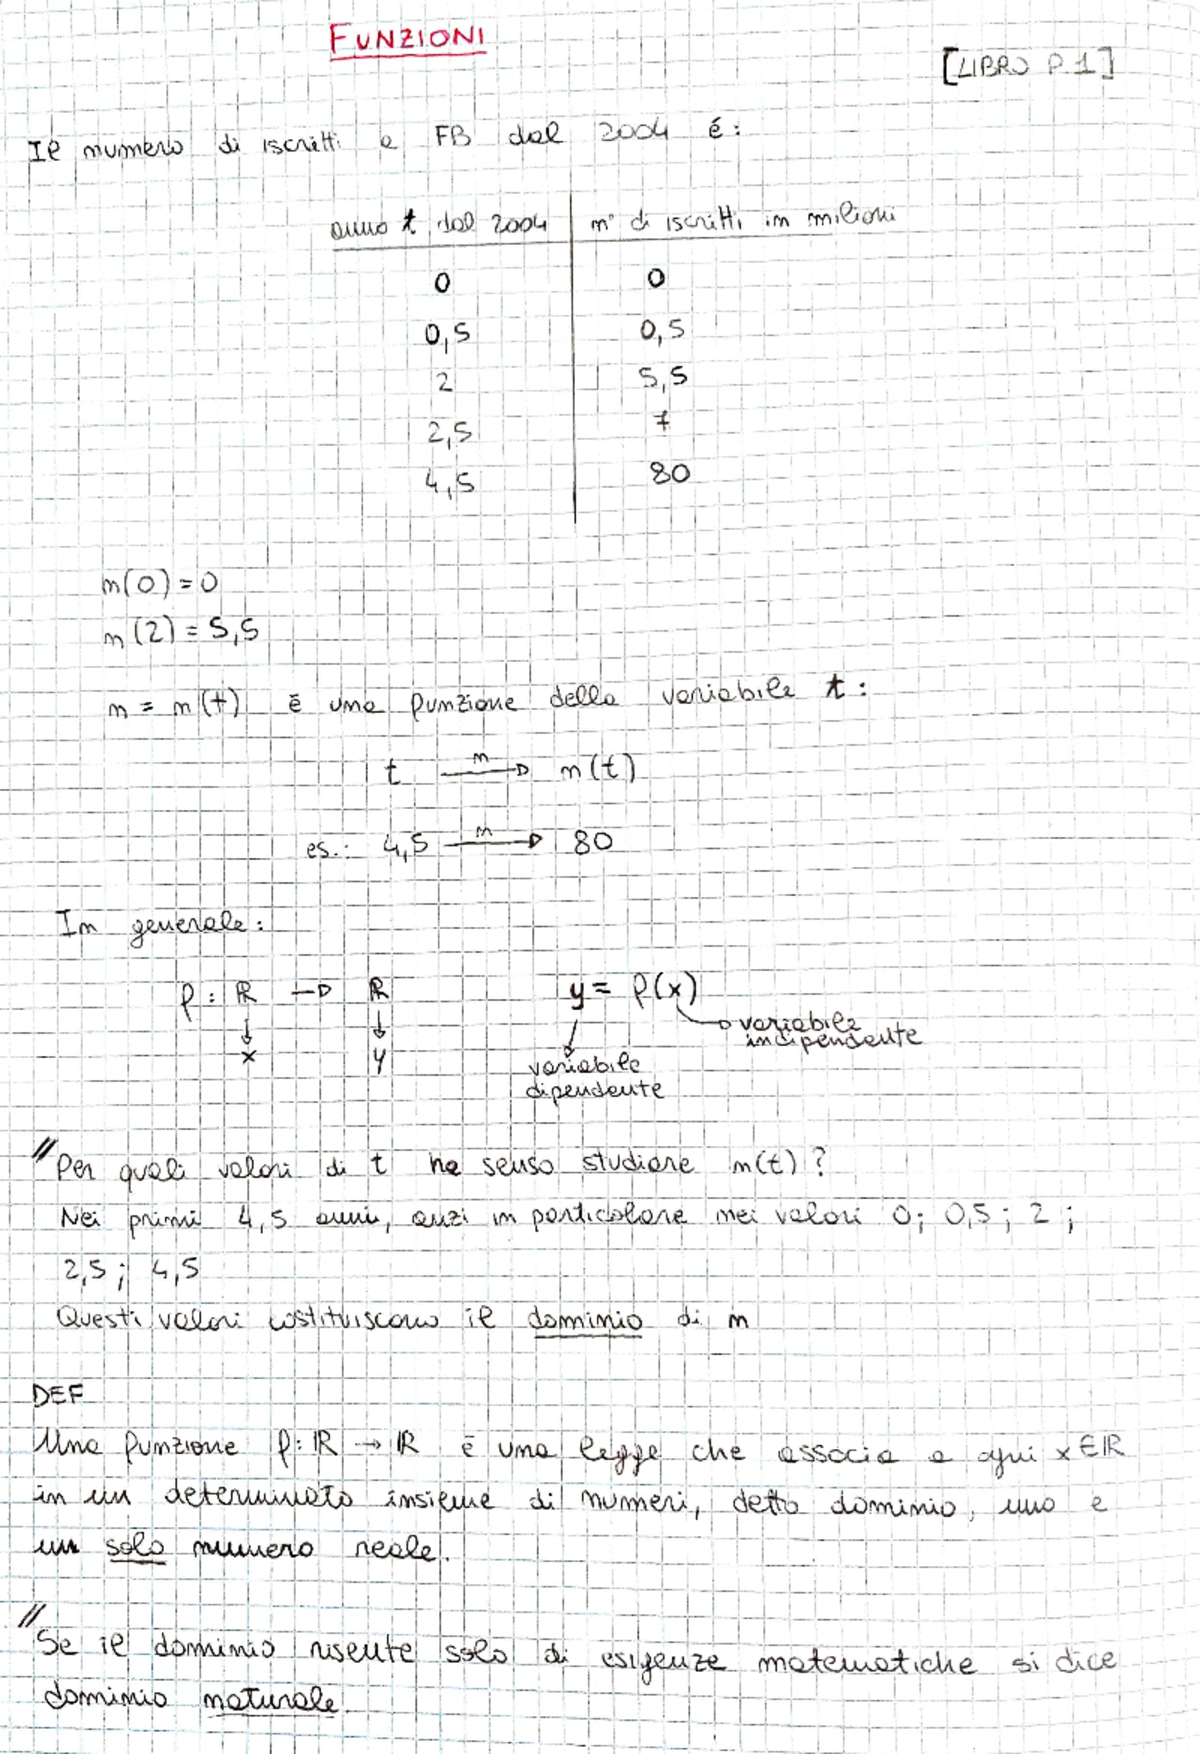 FUNZIONI
[LIBRO P.1]
Il numero di iscritti a FB dal 2004 é:
anno t dal 2004 | n° di iscritti in milioni
0 | 0
0,5 | 0,5
2 | 5,5
2,5 | 7
4,5 | 80
n(0) = 0
n(2) = 5,5
n = n(t) è una funzione della variabile t:
t —n→ n(t)
es.: 4,5 —n→ 80
In generale:
f: ℝ → ℝ   y = f(x)
↓ ↓ variabile
x y indipendente
variabile
dipendente
// Per quali valori di t ha senso studiare n(t)?
Nei primi 4,5 anni, anzi in particolare nei valori 0; 0,5; 2;
2,5; 4,5
Questi valori costituiscono il dominio di n
DEF
Una funzione f: ℝ → ℝ è una legge che associa a ogni x ∈ ℝ
in un determinato insieme di numeri, detto dominio, uno e
un solo numero reale.
// Se il dominio risente solo di esigenze matematiche si dice
dominio naturale.